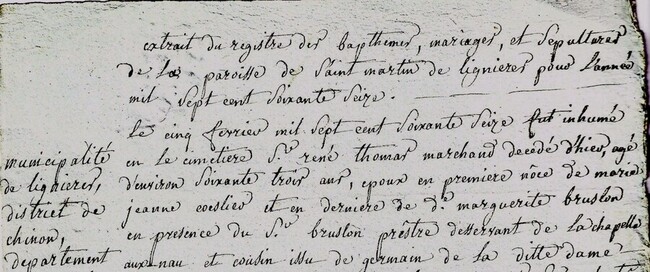 extrait du registre des bapthemes, mariages, et sepultures
de la paroisse de saint martin de lignieres pour l'année
mil sept cent soixante seize.
Le cinq ferrier mil sept cent soixante seize fut inhumé
en le cimetiere Sr rené thomas marchand decedé d'hier, agé
d'environ soixante trois ans, epoux en premiere noce de marie
jeanne et en derniere de de. marguerite bruslon
en presence du Sr. bruslon prêtre desservant de la chapelle
aux nau et cousin issu de germain de la ditte dame
municipalité
de lignieres,
district de
chinon,
departement